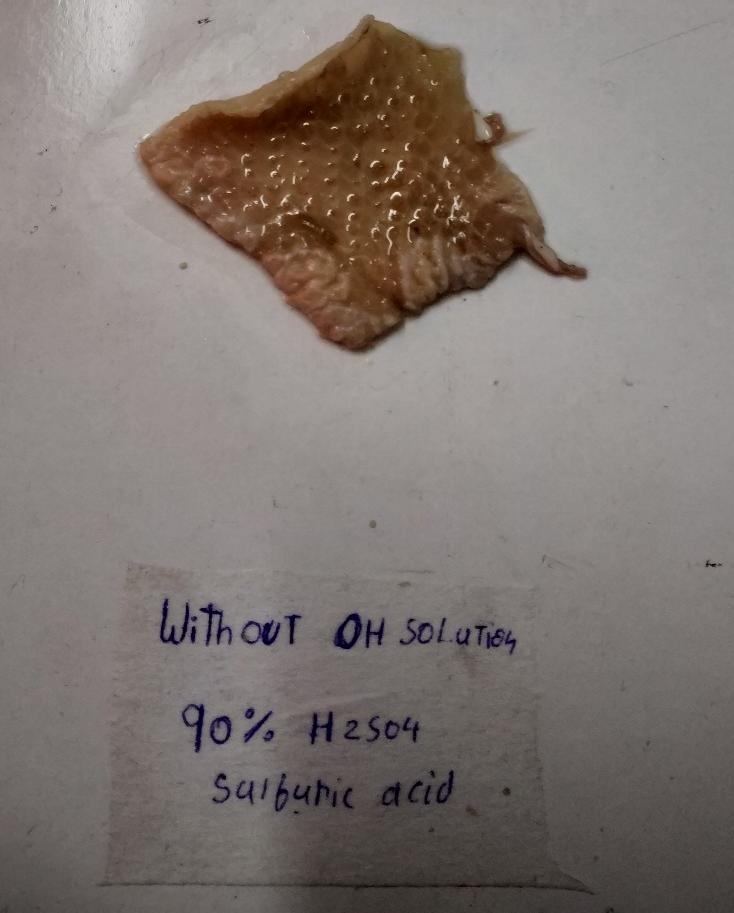 Without OH SOLUTION
90% H2SO4
Sulfuric acid